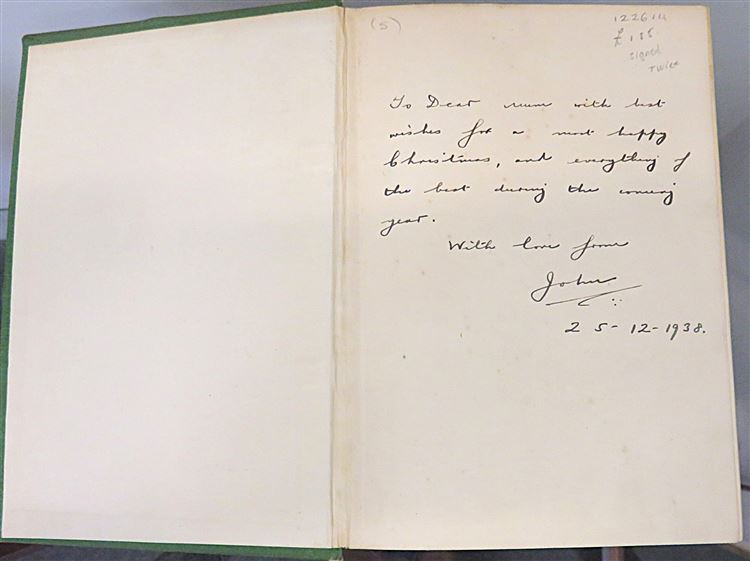 (5)
signed
twice
To Dear Mum with best
wishes for a most happy
Christmas, and everything of
the best during the coming
year.
With love from
John
25-12-1938.